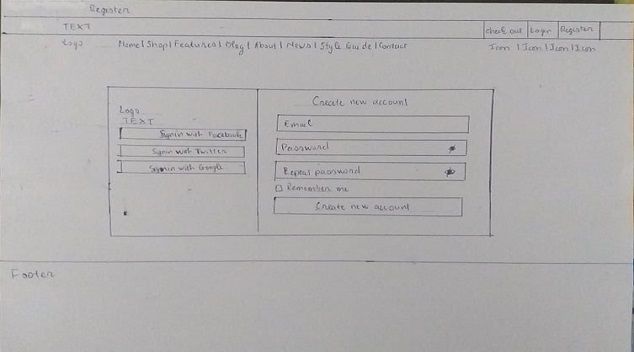 Register
TEXT
check out Login Register
Logo Home | Shop | Features | Blog | About | News | Style Guide | Contact Icon | Icon | Icon | Icon
Logo
TEXT
Signin with Facebook
Signin with Twitter
Signin with Google
Create new account
Email
Password
Repeat password
Remember me
Create new account
Footer